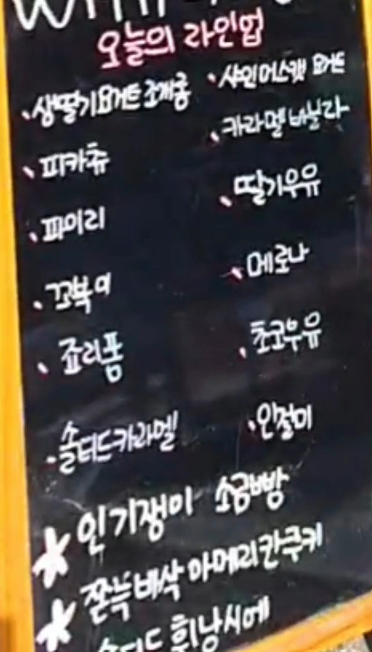 오늘의 라인업
생딸기요거트초케롱
피카츄
파이리
꼬북이
죠리퐁
솔티드카라멜
샤인머스캣 요거트
카라멜 바닐라
딸기우유
메로나
초코우유
인절미
인기쟁이 소금빵
쫀득바삭 아메리칸쿠키
솔티드 휘낭시에